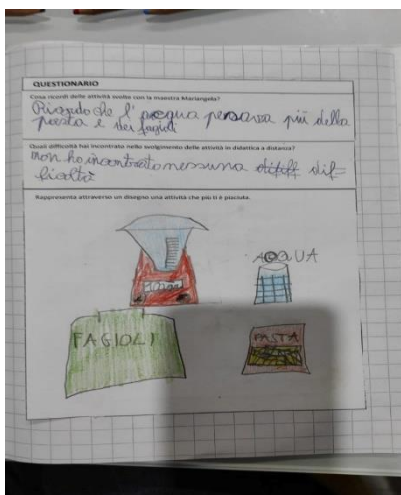 QUESTIONARIO
Cosa ricordi delle attività svolte con la maestra Mariangela?
Ricordo che l'acqua pesava più della
pasta e dei fagioli
Quali difficoltà hai incontrato nello svolgimento delle attività in didattica a distanza?
non ho incontrato nessuna dif=
ficoltà
Rappresenta attraverso un disegno una attività che più ti è piaciuta.
ACQUA
FAGIOLI
PASTA